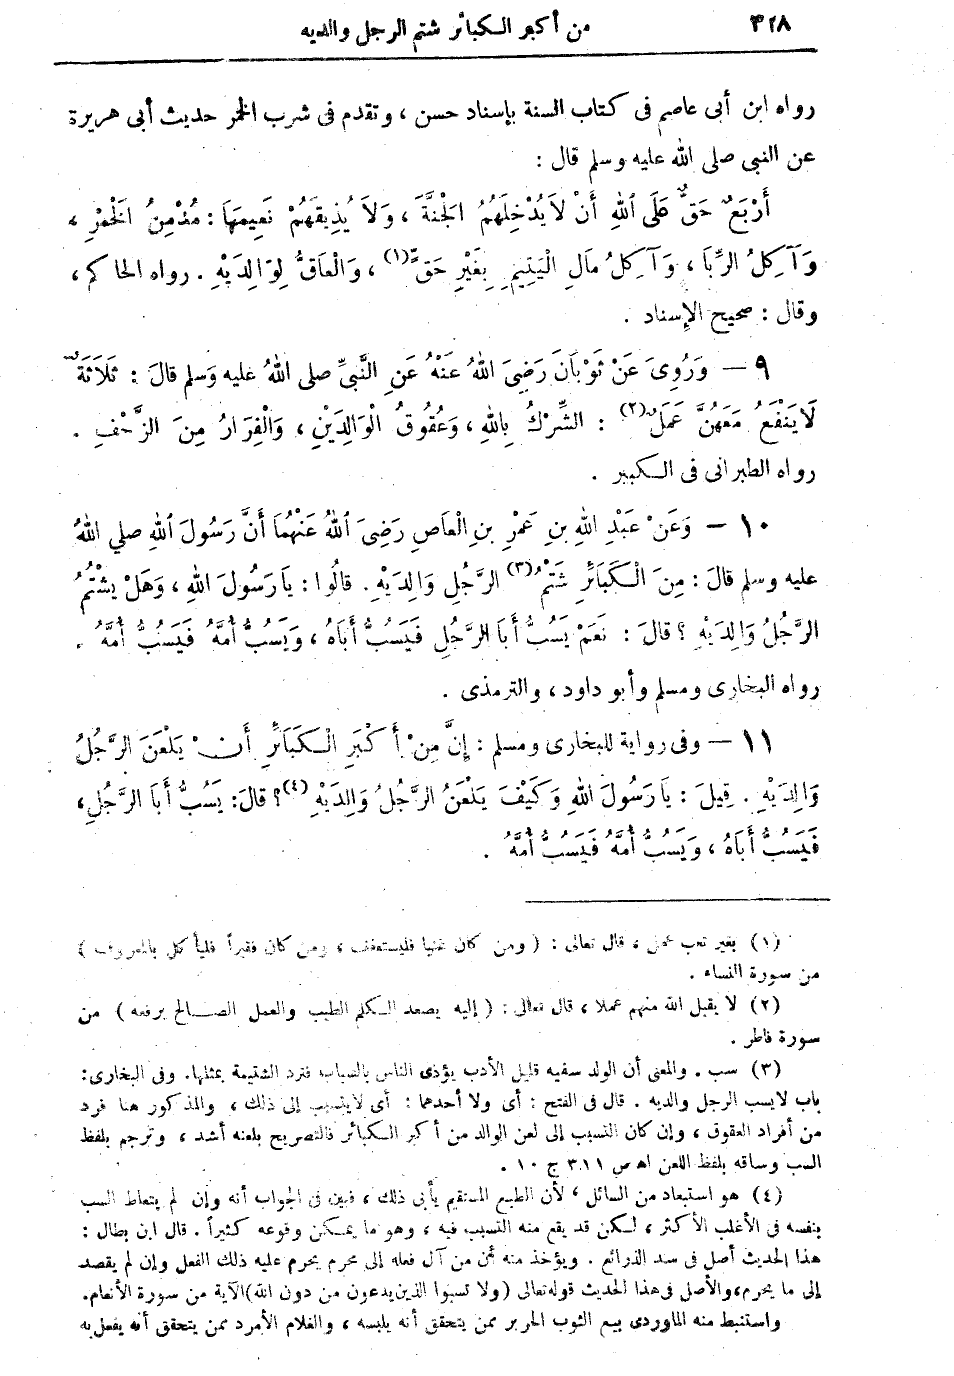 ٣٢٨ من أكبر الكبائر شتم الرجل والديه
رواه ابن أبى عاصم فى كتاب السنة بإسناد حسن ، وتقدم فى شرب الخمر حديث أبى هريرة
عن النبى صلى الله عليه وسلم قال :
أَرْبَعٌ حَقٌّ عَلَى اللهِ أَنْ لَا يُدْخِلَهُمُ الْجَنَّةَ ، وَلَا يُذِيقَهُمْ نَعِيمَهَا : مُدْمِنُ الْخَمْرِ ،
وَآكِلُ الرِّبَا ، وَآكِلُ مَالِ الْيَتِيمِ بِغَيْرِ حَقٍّ (١) ، وَالْعَاقُّ لِوَالِدَيْهِ . رواه الحاكم ،
وقال : صحيح الإسناد .
٩ — وَرُوِىَ عَنْ ثَوْبَانَ رَضِىَ اللهُ عَنْهُ عَنِ النَّبِىِّ صلى اللهُ عليه وَسلم قَالَ : ثَلَاثَةٌ
لَا يَنْفَعُ مَعَهُنَّ عَمَلٌ (٢) : الشِّرْكُ بِاللهِ ، وَعُقُوقُ الْوَالِدَيْنِ ، وَالْفِرَارُ مِنَ الزَّحْفِ .
رواه الطبرانى فى الكبير .
١٠ — وَعَنْ عَبْدِ اللهِ بنِ عَمْرِو بنِ الْعَاصِ رَضِىَ اللهُ عَنْهُمَا أَنَّ رَسُولَ اللهِ صلى اللهُ
عليه وسلم قَالَ : مِنَ الْكَبَائِرِ شَتْمُ (٣) الرَّجُلِ وَالِدَيْهِ . قَالُوا : يَا رَسُولَ اللهِ ، وَهَلْ يَشْتُمُ
الرَّجُلُ وَالِدَيْهِ ؟ قَالَ : نَعَمْ يَسُبُّ أَبَا الرَّجُلِ فَيَسُبُّ أَبَاهُ ، وَيَسُبُّ أُمَّهُ فَيَسُبُّ أُمَّهُ .
رواه البخارى ومسلم وأبو داود ، والترمذى .
١١ — وفى رواية للبخارى ومسلم : إِنَّ مِنْ أَكْبَرِ الْكَبَائِرِ أَنْ يَلْعَنَ الرَّجُلُ
وَالِدَيْهِ . قِيلَ : يَا رَسُولَ اللهِ وَكَيْفَ يَلْعَنُ الرَّجُلُ وَالِدَيْهِ (٤) ؟ قَالَ : يَسُبُّ أَبَا الرَّجُلِ ،
فَيَسُبُّ أَبَاهُ ، وَيَسُبُّ أُمَّهُ فَيَسُبُّ أُمَّهُ .
(١) بغير تعب عمل ، قال تعالى : ( ومن كان غنيا فليستعفف ، ومن كان فقيراً فليأكل بالمعروف )
من سورة النساء .
(٢) لا يقبل الله منهم عملا ، قال تعالى : ( إليه يصعد الكلم الطيب والعمل الصالح يرفعه ) من
سورة فاطر .
(٣) سب . والمعنى أن الولد سفيه قليل الأدب يؤذى الناس بالسباب فترد الشتيمة بمثلها . وفى البخارى :
باب لا يسب الرجل والديه . قال فى الفتح : أى ولا أحدهما : أى لا يتسبب إلى ذلك ، والمذكور هنا فرد
من أفراد العقوق ، وإن كان التسبب إلى لعن الوالد من أكبر الكبائر فالتصريح بلعنه أشد ، وترجم بلفظ
السب وساقه بلفظ اللعن اهـ ص ٣١١ ج ١٠ .
(٤) هو استبعاد من السائل ، لأن الطبع المستقيم يأبى ذلك ، فبين فى الجواب أنه وإن لم يتعاط السب
بنفسه فى الأغلب الأكثر ، لكن قد يقع منه التسبب فيه ، وهو ما يمكن وقوعه كثيراً . قال ابن بطال :
هذا الحديث أصل فى سد الذرائع . ويؤخذ منه أن من آل فعله إلى محرم يحرم عليه ذلك الفعل وإن لم يقصد
إلى ما يحرم ، والأصل فى هذا الحديث قوله تعالى ( ولا تسبوا الذين يدعون من دون الله ) الآية من سورة الأنعام .
واستنبط منه الماوردى بيع الثوب الحرير ممن يتحقق أنه يلبسه ، والغلام الأمرد ممن يتحقق أنه يفعل به